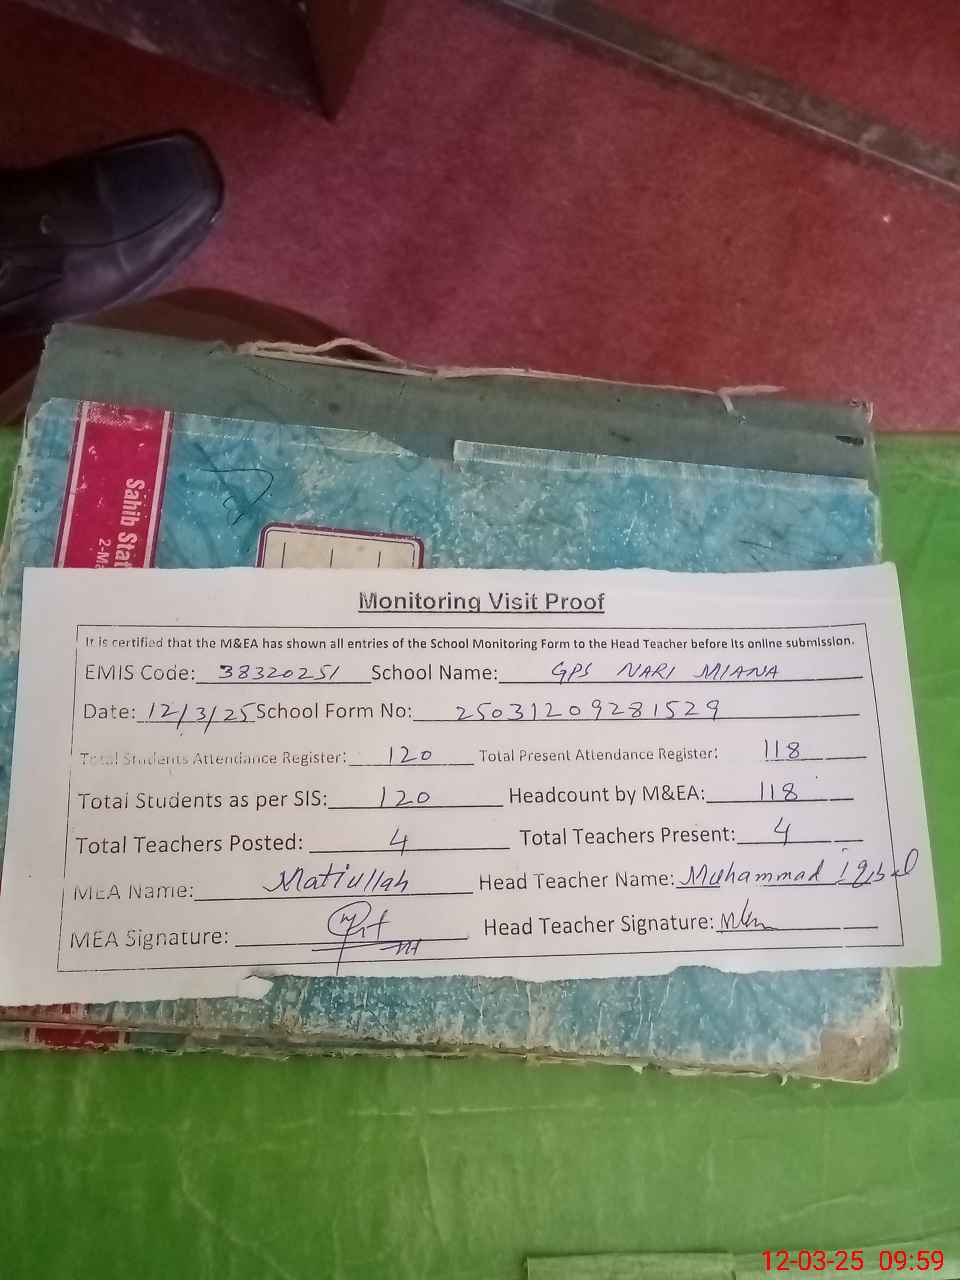 Sahib Stat
2-Ma
Monitoring Visit Proof
It is certified that the M&EA has shown all entries of the School Monitoring Form to the Head Teacher before its online submission.
EMIS Code: 38320251 School Name: GPS NARI MIANA
Date: 12/3/25 School Form No: 25031209281529
Total Students Attendance Register: 120 Total Present Attendance Register: 118
Total Students as per SIS: 120 Headcount by M&EA: 118
Total Teachers Posted: 4 Total Teachers Present: 4
MEA Name: Matiullah Head Teacher Name: Muhammad Iqbal
MEA Signature: Head Teacher Signature:
12-03-25 09:59